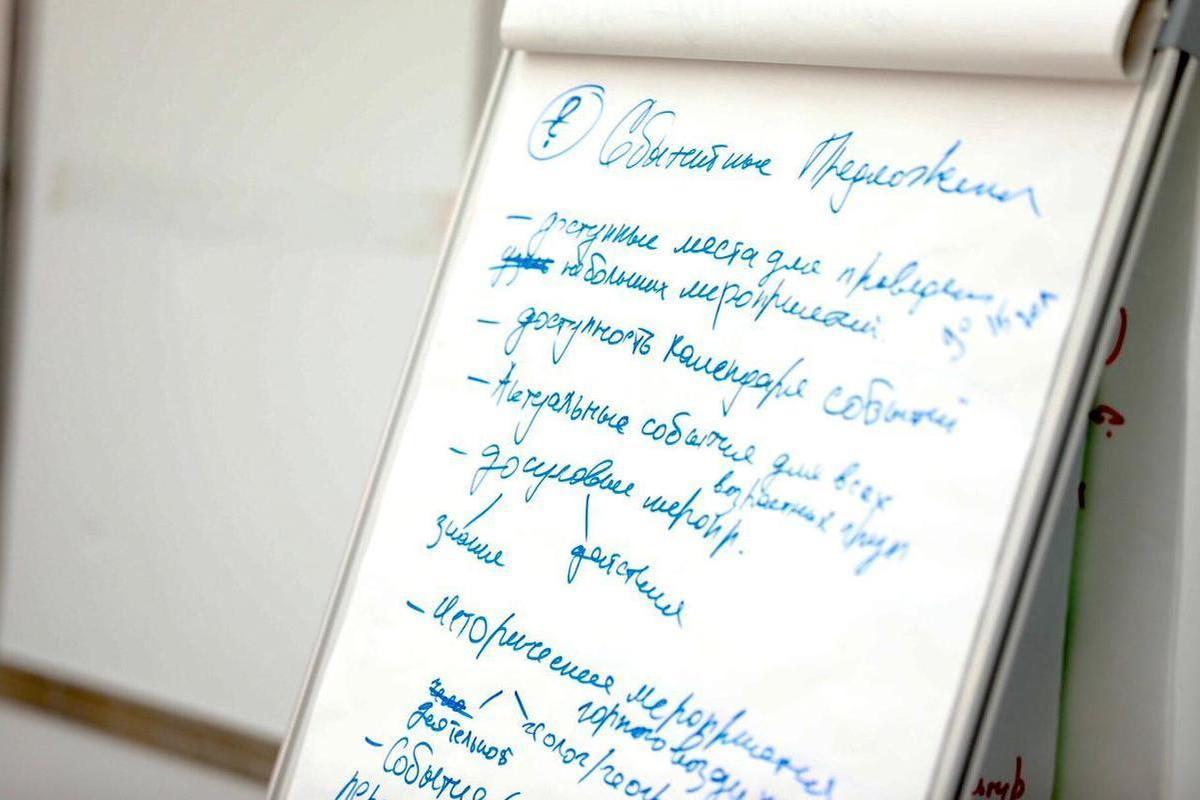 Событийные Предложения
- доступные места для проведения
небольших мероприятий.
- доступность календаря событий
- Актуальные события для всех
возрастных груп
- досуговые меропр.
знание действия
- Исторические мероприятия
деятельност геолог/геогр
- Событие